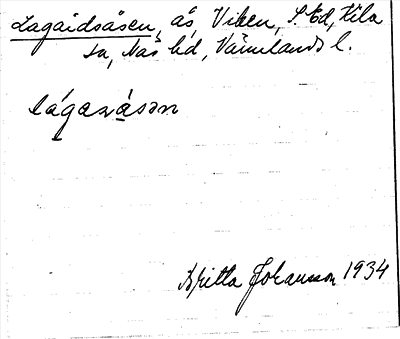 Lagaidsåsen, ås, Viken, S. Ed, Kila
sn, Näs hd, Värmlands l.
lágaråsən
Britta Johansson 1934